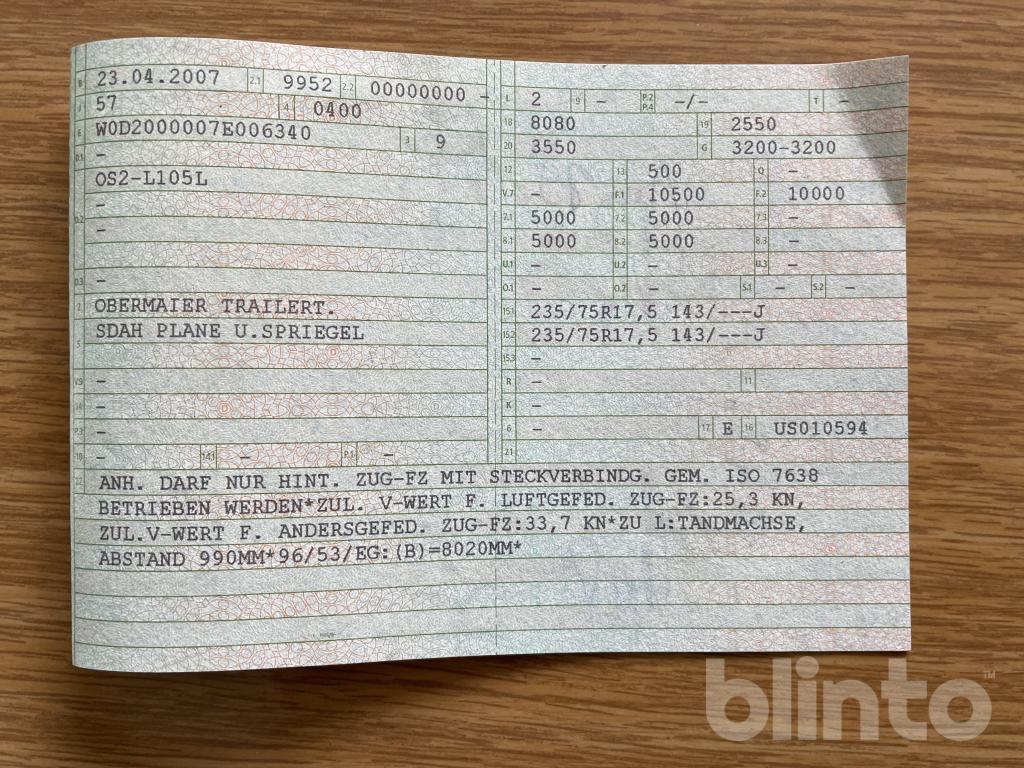 B 23.04.2007 2.1 9952 2.2 00000000 -
J 57 4 0400
E W0D2000007E006340 3 9
D.1 -
OS2-L105L
D.2 -
-
D.3 -
2 OBERMAIER TRAILERT.
5 SDAH PLANE U.SPRIEGEL
V.9 -
14 -
P.3 -
10 - 14.1 - P.1 -
L 2 9 - P.2 P.4 -/- T -
18 8080 19 2550
20 3550 G 3200-3200
12 13 500 Q -
V.7 - F.1 10500 F.2 10000
7.1 5000 7.2 5000 7.3 -
8.1 5000 8.2 5000 8.3 -
U.1 - U.2 - U.3 -
O.1 - O.2 - S.1 - S.2 -
15.1 235/75R17,5 143/---J
15.2 235/75R17,5 143/---J
15.3 -
R - 11
K -
6 - 17 E 16 US010594
21
22 ANH. DARF NUR HINT. ZUG-FZ MIT STECKVERBINDG. GEM. ISO 7638
BETRIEBEN WERDEN*ZUL. V-WERT F. LUFTGEFED. ZUG-FZ:25,3 KN,
ZUL.V-WERT F. ANDERSGEFED. ZUG-FZ:33,7 KN*ZU L:TANDMACHSE,
ABSTAND 990MM*96/53/EG:(B)=8020MM*
blinto™